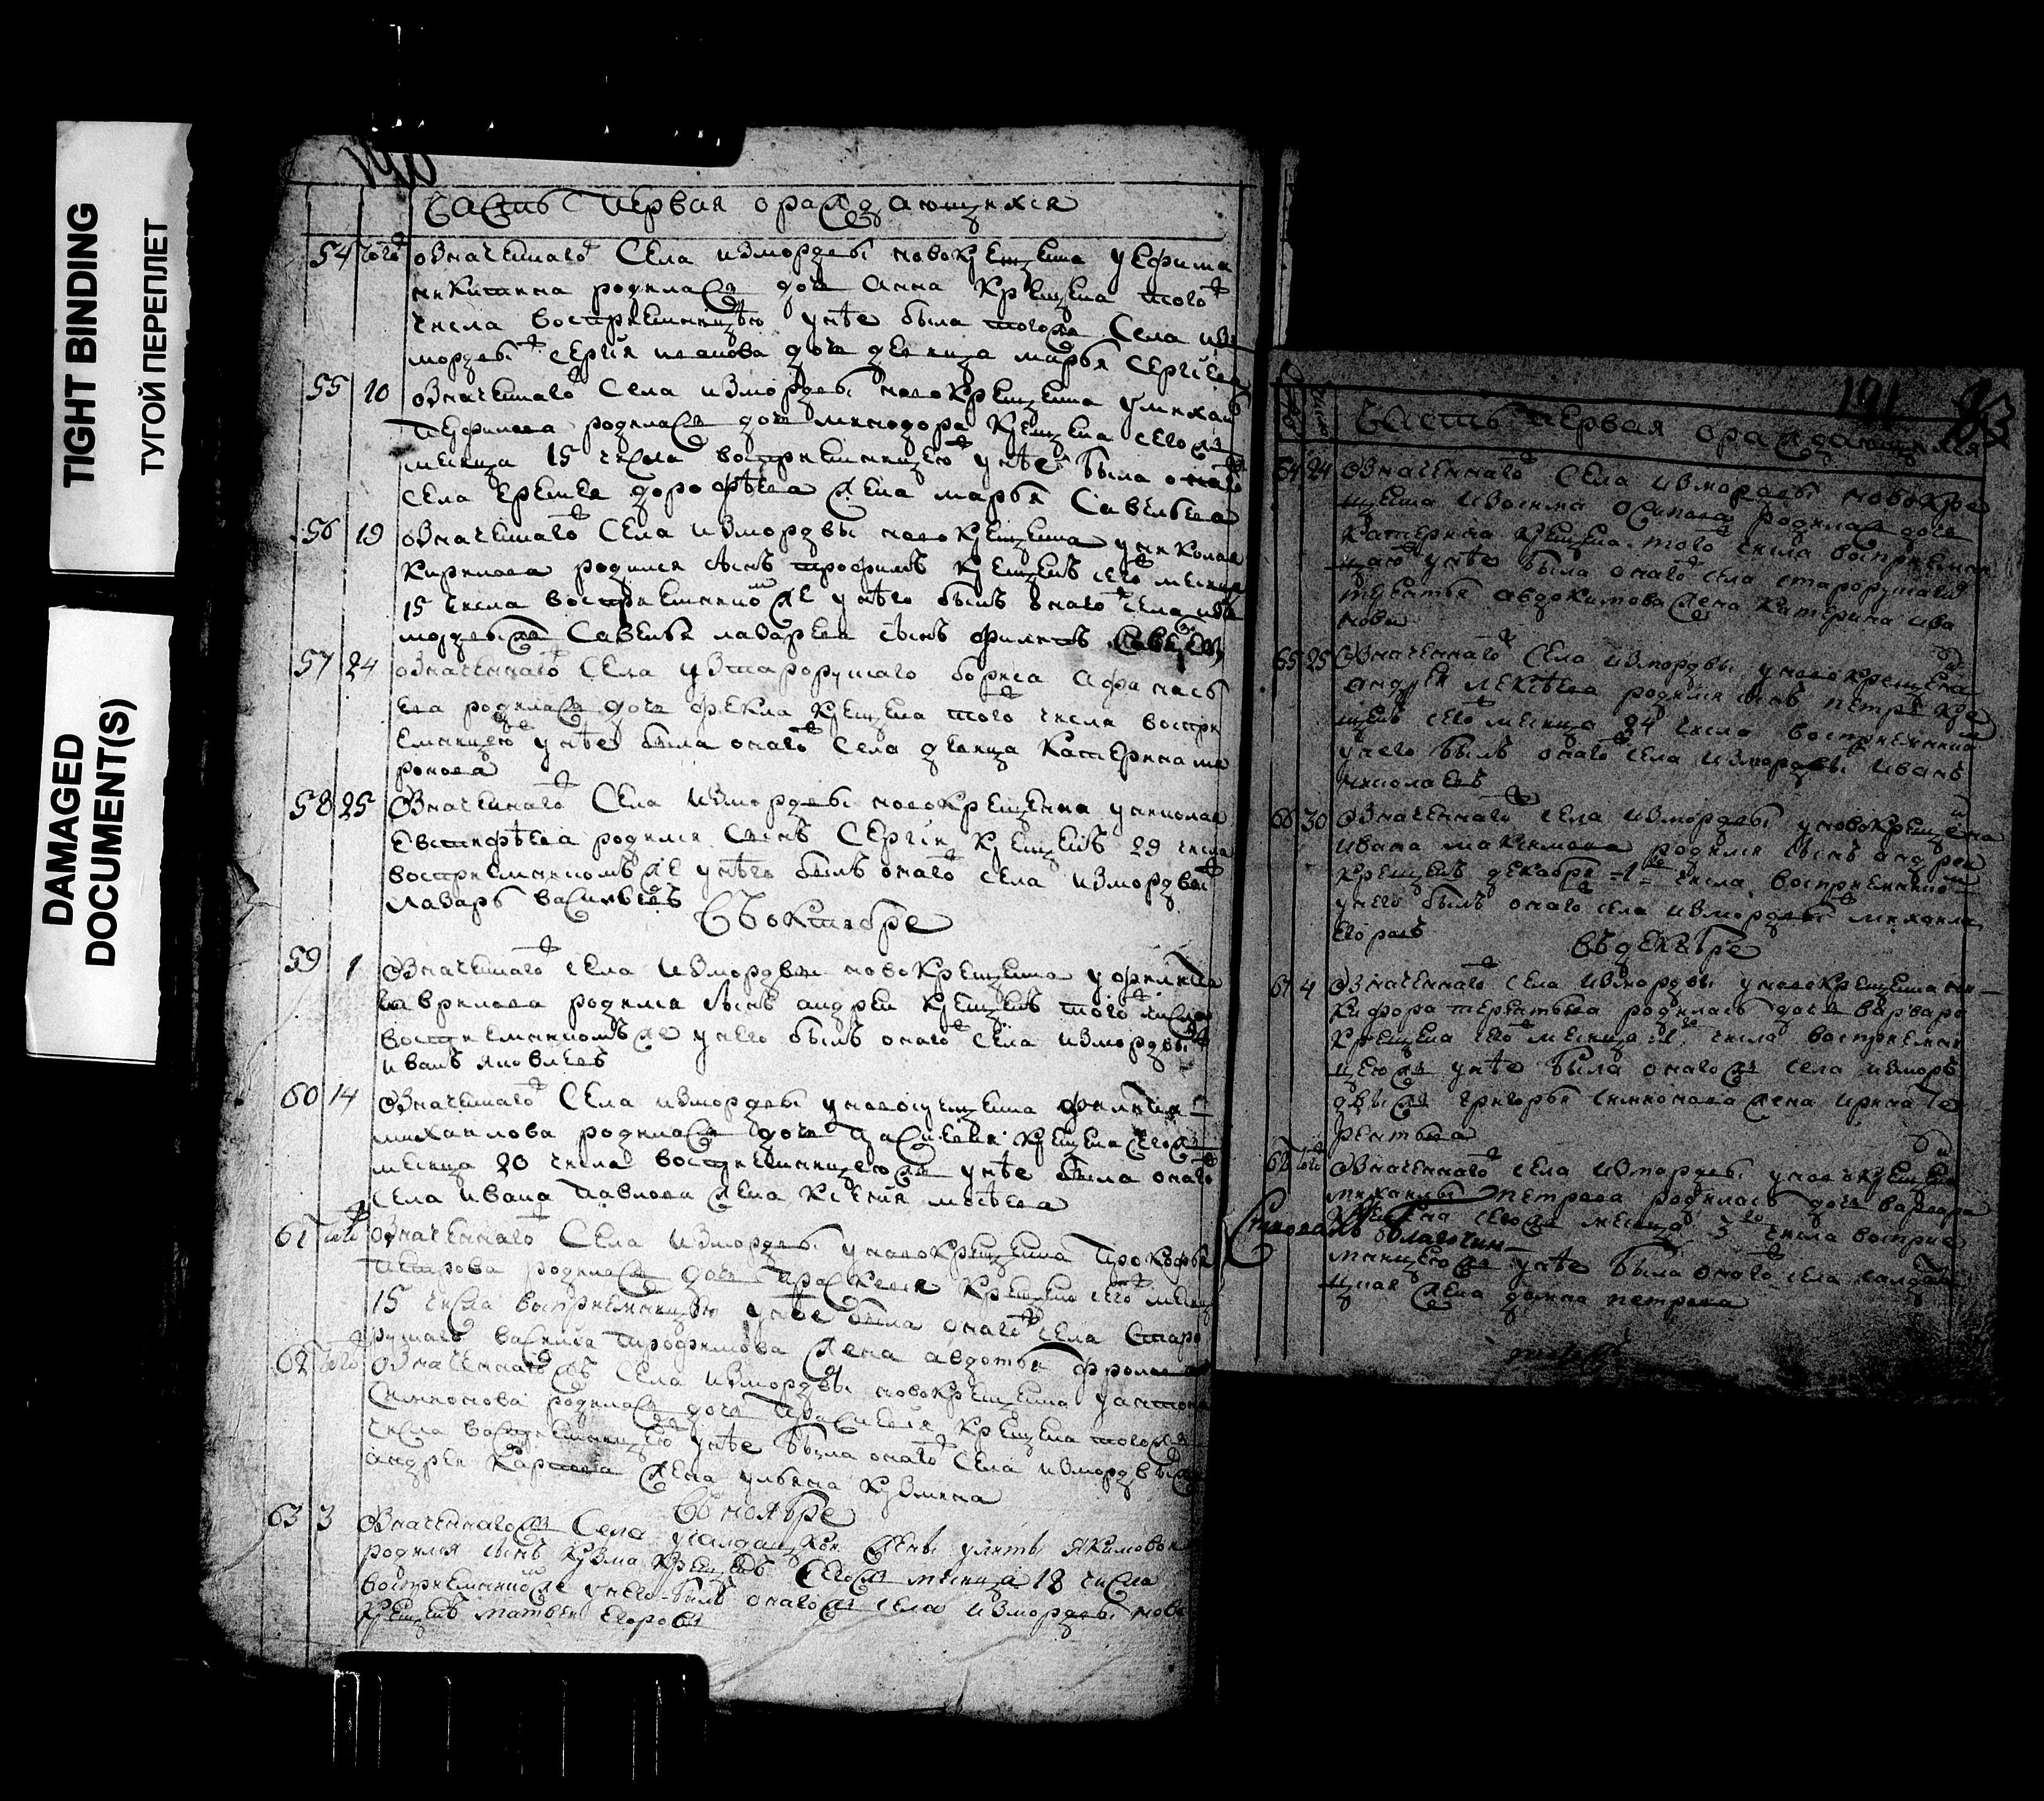 TIGHT BINDING
ТУГОЙ ПЕРЕПЛЕТ
DAMAGED
DOCUMENT(S)
Часть первая о раждающихся
54 того означеннаго села измордвы новокрещена у Ефима
никитина родилась дочь Анна крещена того
числа восприемницею у нѣе была тогоже села изъ
мордвы сергѣя иванова дочь девица марья сергѣева
55 10 означеннаго села измордвы новокрещена у михаи
родилась дочь минодора крещена сегож
месяца 15 числа восприемницею у нѣе была онаго
села еремея дорофѣева жена марья савельева
56 19 означеннаго села измордвы новокрещена у николая
кирилова родился сынъ трофимъ крещенъ сего месяца
15 числа восприемникомже у нѣго былъ онаго села из
мордвыже савелья лазарева сынъ филипъ
57 24 означеннаго села у старорускаго бориса афанась
ева родилась дочь фекла крещена того числа воспри
емницею у нѣе была онаго села девица катерина ми
ронова
58 25 Означеннаго села измордвы новокрещена у николая
евстифѣева родился сынъ сергѣй крещенъ 29 числа
восприемникомъже у нѣго былъ онаго села измордвы
лазарь васильевъ
Въ октябре
59 1 Означеннаго села измордвы новокрещена у филипа
гаврилова родился сынъ андреи крещенъ того числа
восприемникомъже у него былъ онаго села измордвы
иванъ яковлевъ
60 14 Означеннаго села измордвы у новокрещена филипа
михаилова родилась дочь праскевия крещена сегож
месяца 20 числа восприемницеюже у нѣе была онаго
села ивана павлова жена ксения мосѣева
61 Означеннаго села измордвы у новокрещена прокофья
петрова родилась дочь праскевия крещена сего месяца
15 числа восприемницею у нѣе была онаго села старо
рускаго василья трофимова жена авдотья фролова
62 того Означеннагожъ села измордвы новокрещена у антона
симионова родилась дочь праскевия крещена тогож
числа восприемницею у нѣе была онаго села измордвыж
андрея карпова жена ульяна кузмина
Въ ноябре
63 3 Означеннагож села у салдацкои жены якимовои
родился сынъ кузма крещенъ сегож месяца 12 числа
восприемникомже у него былъ онагож села измордвы ново
крещенъ матвеи егоровъ
191
Часть первая о раждающихся
64 24 Означеннаго села измордвы новокре
щена осипова родилась дочь
катерина крещена того числа восприемни
цаю у нѣе была онаго села старорускаго
авдокимова жена катерина ива
нова
65 25 Означеннаго села измордвы у новокрещена
андрея алексѣева родился сынъ петръ кре
щенъ сего месяца 24 числа восприемникомъ
у него былъ онаго села измордвы иванъ
николаевъ
66 30 Означеннаго села измордвы у новокрещена
ивана максимова родился сынъ андреи
крещенъ декабря 1 числа восприемникомъ
у него былъ онаго села измордвы михаила
егоровъ
въ декабре
67 4 Означеннаго села измордвы у новокрещена ни
кифора терентьева родилась дочь варвара
крещена сего месяца числа восприемни
цеюж у нѣе была онагож села измор
двыж григорья симионова жена ирина те
рентьева
68 того Означеннаго села измордвы у новокрещена
михаилы петрова родилась дочь варвара
крещена сегож месяца 5го числа восприе
мницеюже у нѣе была онаго села салдат
цкая жена дарья петрова